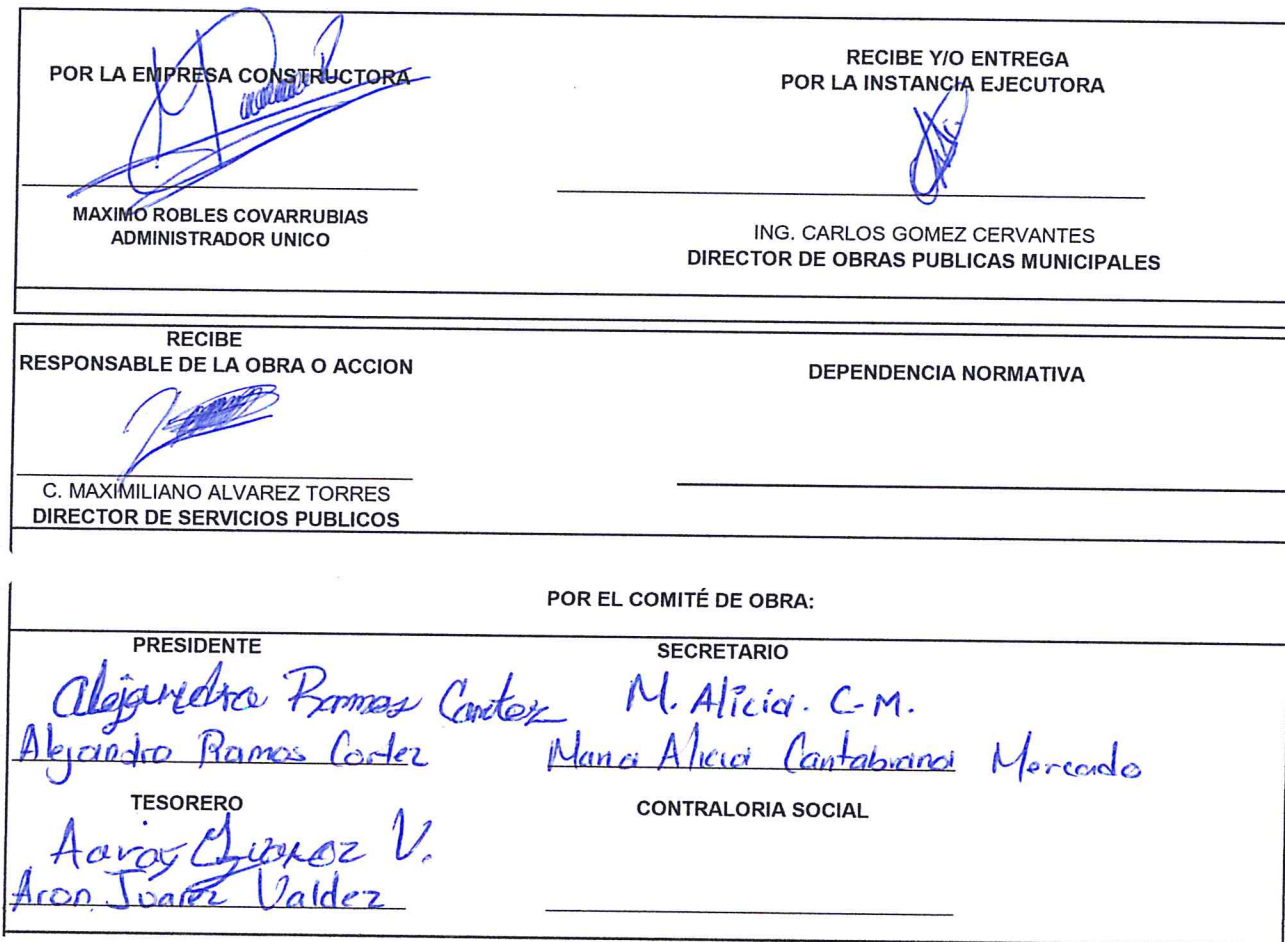 POR LA EMPRESA CONSTRUCTORA
MAXIMO ROBLES COVARRUBIAS
ADMINISTRADOR UNICO
RECIBE Y/O ENTREGA
POR LA INSTANCIA EJECUTORA
ING. CARLOS GOMEZ CERVANTES
DIRECTOR DE OBRAS PUBLICAS MUNICIPALES
RECIBE
RESPONSABLE DE LA OBRA O ACCION
C. MAXIMILIANO ALVAREZ TORRES
DIRECTOR DE SERVICIOS PUBLICOS
DEPENDENCIA NORMATIVA
POR EL COMITÉ DE OBRA:
PRESIDENTE
Ramos
Alejandro Ramos Cortez
SECRETARIO
M. Alicia. C-M.
Maria Alicia Cantabrana Mercado
TESORERO
V.
Aron Juarez Valdez
CONTRALORIA SOCIAL